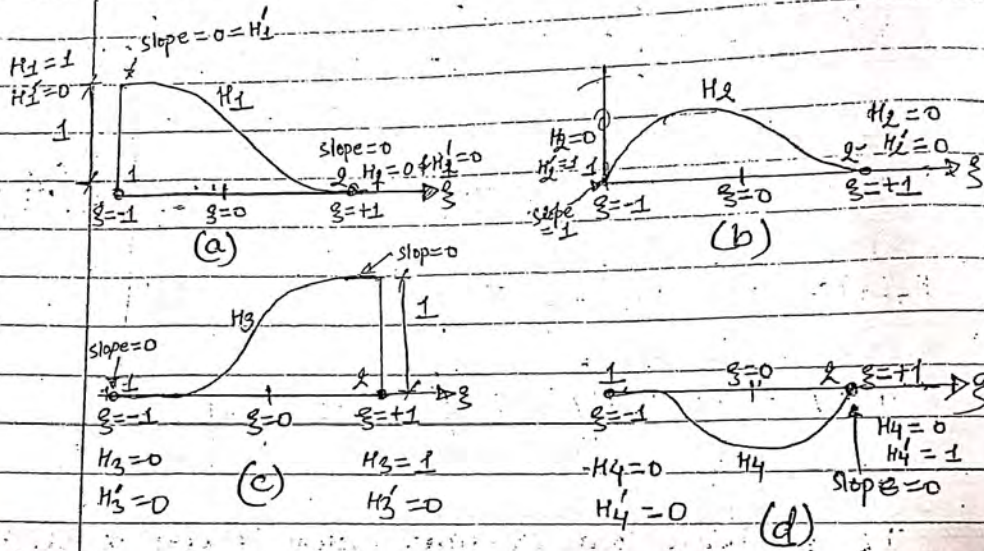 slope=0=H₁'
H₁=1
H₁'=0
1
H₁
1
slope=0
2 H₁=0 & H₁'=0
ξ=-1 ξ=0 ξ=+1 ξ
(a)
H₂
H₂=0
H₂'=1 1
H₂=0
2 H₂'=0
slope
=1
ξ=-1 ξ=0 ξ=+1 ξ
(b)
slop=0
H₃
1
slope=0
1 2 ξ
ξ=-1 ξ=0 ξ=+1
H₃=0 H₃=1
H₃'=0 H₃'=0
(c)
1 ξ=0 2 ξ=+1 ξ
ξ=-1
H₄=0
H₄'=1
H₄
H₄=0
slope=0
H₄'=0
(d)